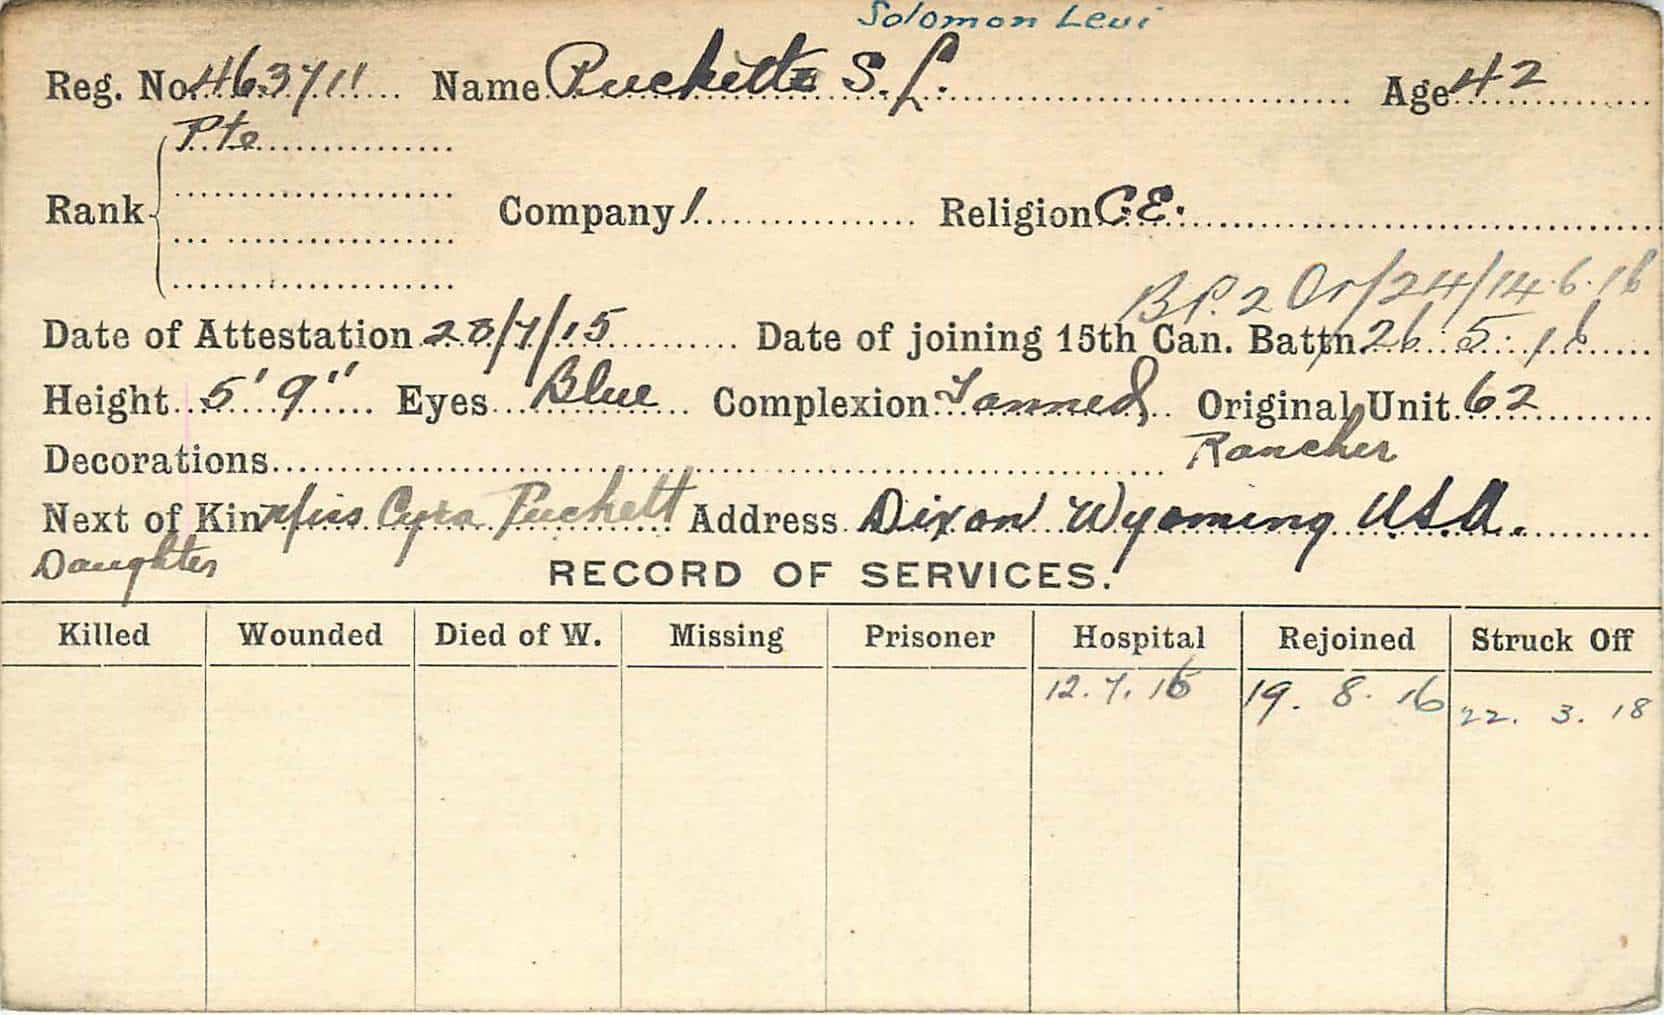 Solomon Levi
Reg. No. 463711 Name Puckette S. L. Age 42
Pte
Rank Company 1 Religion C.E.
B.P. 2 Or/24/14.6.16
Date of Attestation 28/7/15 Date of joining 15th Can. Battn 26.5.16
Height 5' 9" Eyes Blue Complexion Tanned Original Unit 62
Decorations Rancher
Next of Kin Miss Puckett Address Dixon Wyoming U.S.A.
Daughter
RECORD OF SERVICES.
Killed Wounded Died of W. Missing Prisoner Hospital Rejoined Struck Off
12.7.16 19.8.16 22.3.18